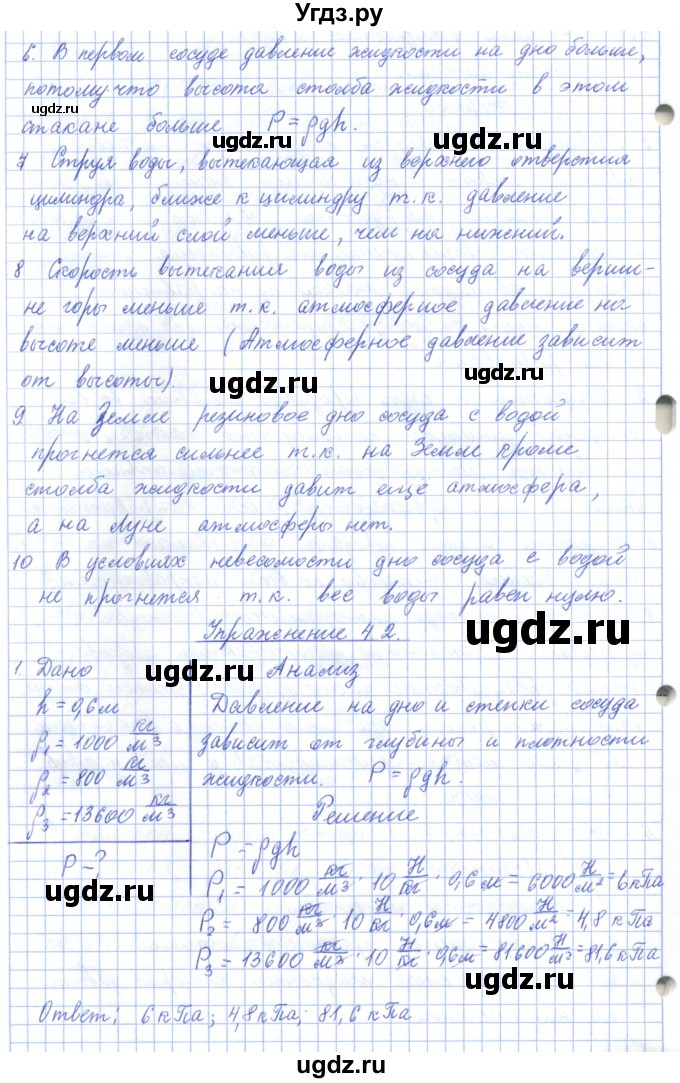 Угдз.ру
6. В первом сосуде давление жидкости на дно больше,
потому что высота столба жидкости в этом
стакане больше P = ρgh.
7 Струя воды, вытекающая из верхнего отверстия
цилиндра, ближе к цилиндру т.к. давление
на верхний слой меньше, чем на нижений.
8 Скорость вытекания воды из сосуда на верши-
не горы меньше т.к. атмосферное давление на
высоте меньше (Атмосферное давление зависит
от высоты).
9 На Земле резиновое дно сосуда с водой
прогнется сильнее т.к. на Земле кроме
столба жидкости давит еще атмосфера,
а на Луне атмосферы нет.
10 В условиях невесомости дно сосуда с водой
не прогнется т.к. вес воды равен нулю.
Упражнение 4.2.
1. Дано
h = 0,6 м
ρ1 = 1000 кг/м3
ρ2 = 800 кг/м3
ρ3 = 13600 кг/м3
P - ?
Анализ
Давление на дно и стенки сосуда
зависит от глубины и плотности
жидкости. P = ρgh.
Решение
P = ρgh
P1 = 1000 кг/м3 · 10 Н/кг · 0,6 м = 6000 Н/м2 = 6 кПа
P2 = 800 кг/м3 · 10 Н/кг · 0,6 м = 4800 Н/м2 = 4,8 кПа
P3 = 13600 кг/м3 · 10 Н/кг · 0,6 м = 81600 Н/м2 = 81,6 кПа
Ответ: 6 кПа; 4,8 кПа; 81,6 кПа
ugdz.ru
ugdz.ru
ugdz.ru
ugdz.ru
ugdz.ru
ugdz.ru
ugdz.ru
ugdz.ru
ugdz.ru
ugdz.ru
ugdz.ru
ugdz.ru